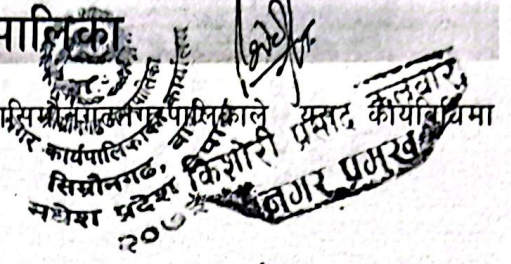 पालिका
सिम्रौनगढ नगरपालिकाले यसद कार्यविधिमा
नगर कार्यपालिकाको कार्यालय
सिम्रौनगढ,
मधेश प्रदेश
किशोरी प्रसाद कलवार
नगर प्रमुख